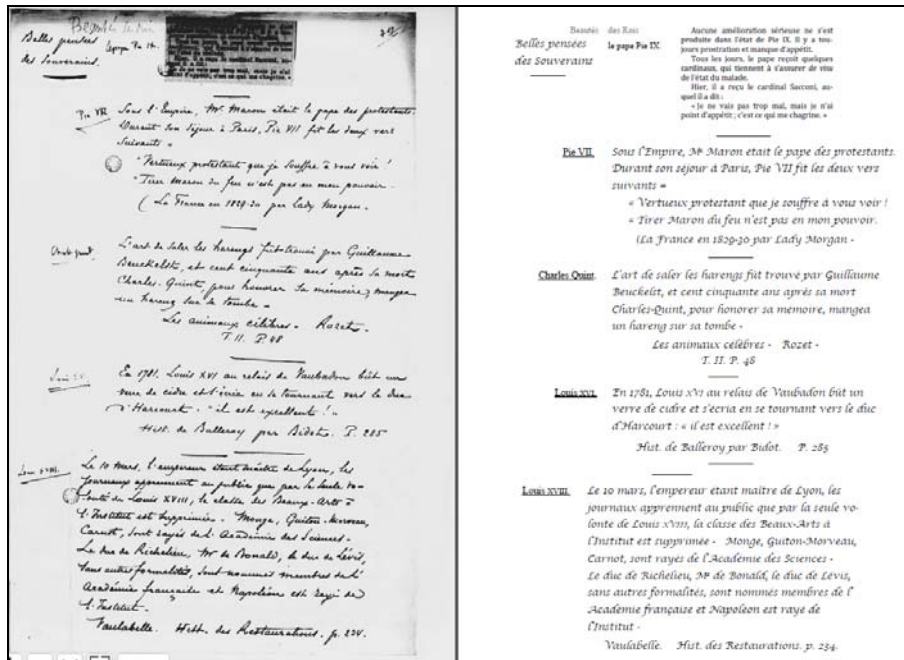 Belles pensées
le pape Pie IX.
des Souverains.
Hier, il a reçu le cardinal Sacconi, au-
quel il a dit :
« Je ne vais pas trop mal, mais je n'ai
point d'appétit ; c'est ce qui me chagrine. »
Pie VII Sous l'Empire, Mr Maron était le pape des protestants.
Durant son séjour à Paris, Pie VII fit les deux vers
suivants =
"Vertueux protestant que je souffre à vous voir !
"Tirer Maron du feu n'est pas en mon pouvoir.
(La France en 1829-30 par Lady Morgan -
L'art de saler les harengs fût trouvé par Guillaume
Beuckelst, et cent cinquante ans après sa mort
Charles-Quint, pour honorer sa mémoire, mangea
un hareng sur sa tombe -
Les animaux célèbres - Rozet -
T. II. P. 48
En 1781, Louis XVI au relais de Vaubadon bût un
verre de cidre et s'écria en se tournant vers le duc
d'Harcourt : "il est excellent ! "
Hist. de Balleroy par Bidot. P. 285
Louis XVIII. Le 10 mars, l'empereur étant maître de Lyon, les
journaux apprennent au public que par la seule vo-
lonté de Louis XVIII, la classe des Beaux-Arts à
l'Institut est supprimée - Monge, Guiton-Morveau,
Carnot, sont rayés de l'Académie des Sciences -
Le duc de Richelieu, Mr de Bonald, le duc de Lévis,
sans autres formalités, sont nommés membres de l'
Académie française et Napoléon est rayé de
l'Institut -
Vaulabelle. Hist. des Restaurations. p. 234.
Beautés des Rois
Belles pensées le pape Pie IX.
des Souverains
Aucune amélioration sérieuse ne s'est
produite dans l'état de Pie IX. Il y a tou-
jours prostration et manque d'appétit.
Tous les jours, le pape reçoit quelques
cardinaux, qui tiennent à s'assurer de visu
de l'état du malade.
Hier, il a reçu le cardinal Sacconi, au-
quel il a dit :
« Je ne vais pas trop mal, mais je n'ai
point d'appétit ; c'est ce qui me chagrine. »
Pie VII. Sous l'Empire, Mr Maron était le pape des protestants.
Durant son séjour à Paris, Pie VII fit les deux vers
suivants =
« Vertueux protestant que je souffre à vous voir !
« Tirer Maron du feu n'est pas en mon pouvoir.
(La France en 1829-30 par Lady Morgan -
Charles Quint. L'art de saler les harengs fût trouvé par Guillaume
Beuckelst, et cent cinquante ans après sa mort
Charles-Quint, pour honorer sa memoire, mangea
un hareng sur sa tombe -
Les animaux celèbres - Rozet -
T. II. P. 48
Louis XVI. En 1781, Louis XVI au relais de Vaubadon bût un
verre de cidre et s'écria en se tournant vers le duc
d'Harcourt : « il est excellent ! »
Hist. de Balleroy par Bidot. P. 285
Louis XVIII. Le 10 mars, l'empereur étant maître de Lyon, les
journaux apprennent au public que par la seule vo-
lonte de Louis XVIII, la classe des Beaux-Arts à
l'Institut est supprimée - Monge, Guiton-Morveau,
Carnot, sont rayés de l'Academie des Sciences -
Le duc de Richelieu, Mr de Bonald, le duc de Levis,
sans autres formalités, sont nommés membres de l'
Academie française et Napoleon est raye de
l'Institut -
Vaulabelle. Hist. des Restaurations. p. 234.